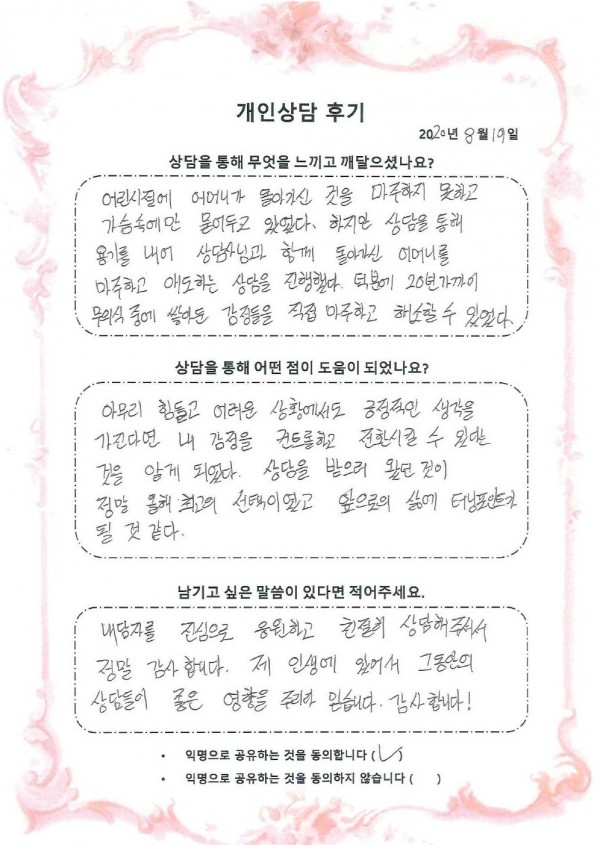 개인상담 후기
2020년 8월 19일
상담을 통해 무엇을 느끼고 깨달으셨나요?
어린시절에 어머니가 돌아가신 것을 마주하지 못하고
가슴속에만 묻어두고 있었다. 하지만 상담을 통해
용기를 내어 상담사님과 함께 돌아가신 어머니를
마주하고 애도하는 상담을 진행했다. 덕분에 20년가까이
무의식 중에 쌓아둔 감정들을 직접 마주하고 해소할 수 있었다.
상담을 통해 어떤 점이 도움이 되었나요?
아무리 힘들고 어려운 상황에서도 긍정적인 생각을
가진다면 내 감정을 컨트롤하고 전환시킬 수 있다는
것을 알게 되었다. 상담을 받으러 왔던 것이
정말 올해 최고의 선택이었고 앞으로의 삶에 터닝포인트가
될 것 같다.
남기고 싶은 말씀이 있다면 적어주세요.
내담자를 진심으로 응원하고 친절히 상담해주셔서
정말 감사합니다. 제 인생에 있어서 그동안의
상담들이 좋은 영향을 주리라 믿습니다. 감사합니다!
• 익명으로 공유하는 것을 동의합니다 (✓)
• 익명으로 공유하는 것을 동의하지 않습니다 ( )